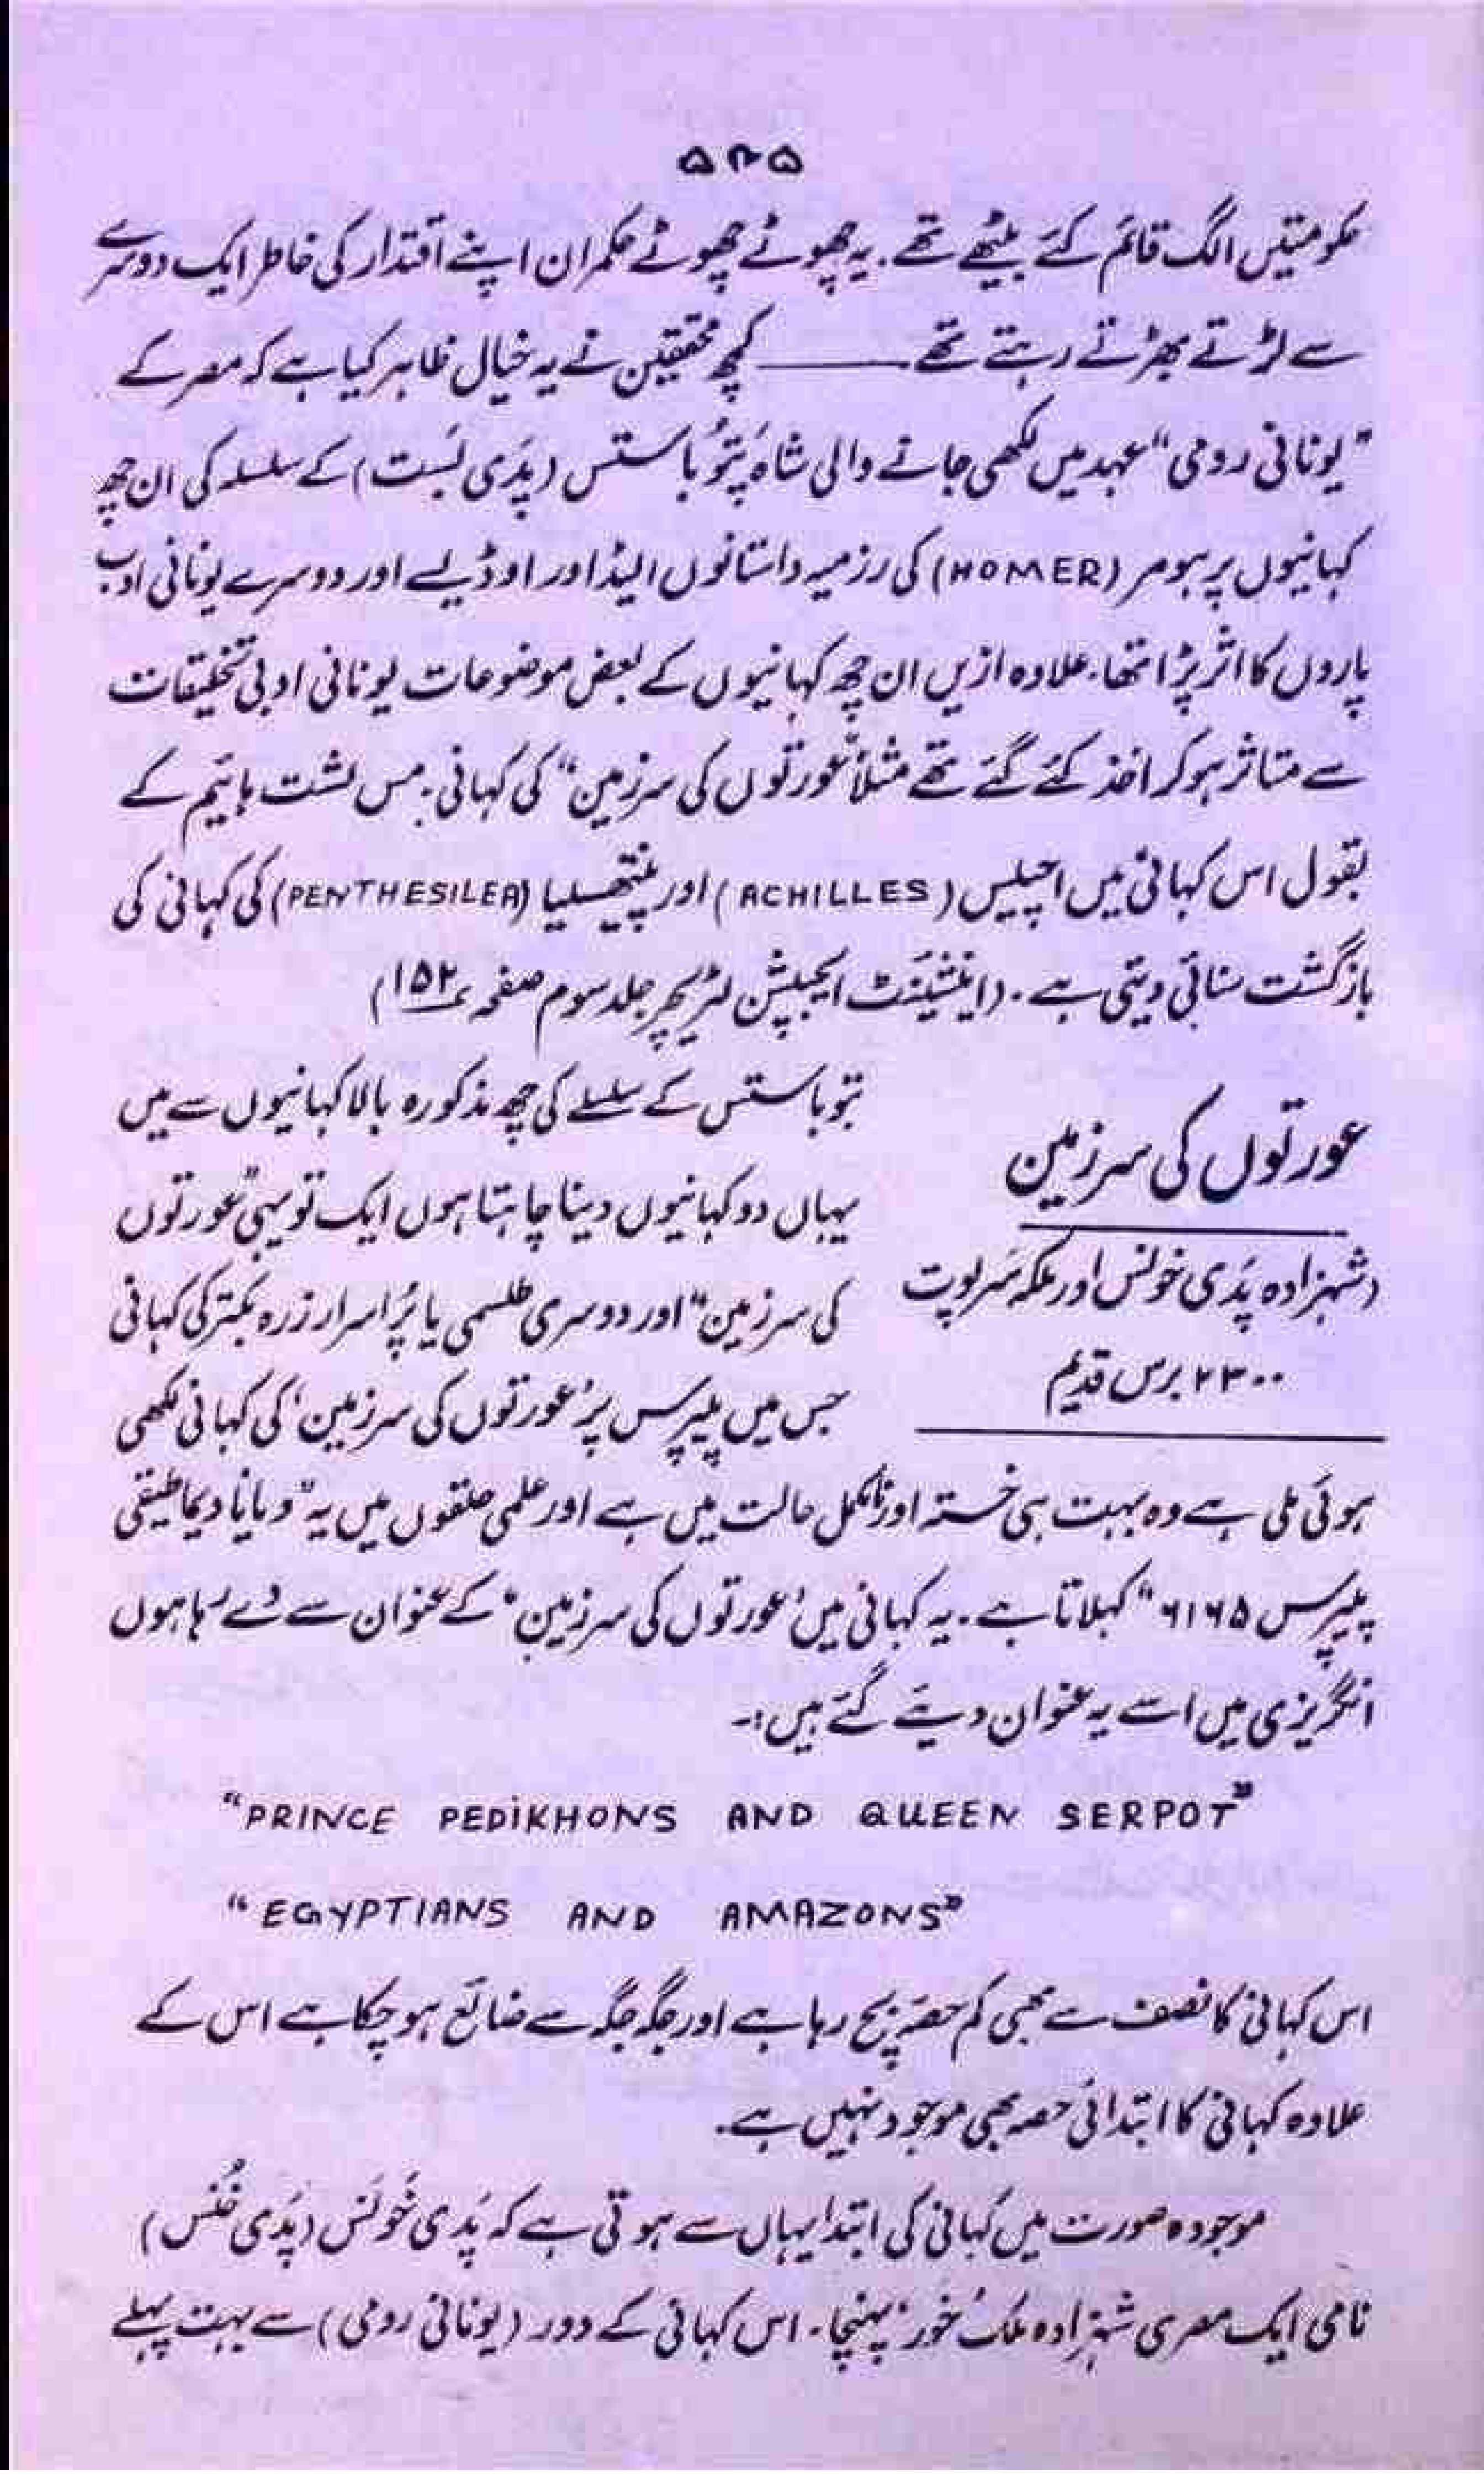 ۵۲۵
حکومتیں الگ قائم کئے بیٹھے تھے۔ یہ چھوٹے چھوٹے حکمران اپنے اقتدار کی خاطر ایک دوسرے
سے لڑتے بھڑتے رہتے تھے ـــــــــ کچھ محققین نے یہ خیال ظاہر کیا ہے کہ مصر کے
”یونانی رومی“ عہد میں لکھی جانے والی شاہ پَتُوباستس (پَدَی بَست) کے سلسلہ کی ان چھ
کہانیوں پر ہومر (HOMER) کی رزمیہ داستانوں الیڈ اور اوڈیسے اور دوسرے یونانی ادب
پاروں کا اثر پڑا تھا۔ علاوہ ازیں ان چھ کہانیوں کے بعض موضوعات یونانی ادبی تخلیقات
سے متاثر ہو کر اخذ کئے گئے تھے مثلاً ”عورتوں کی سرزمین“ کی کہانی۔ مس لشت ہائیم کے
بقول اس کہانی میں اچیلس (ACHILLES) اور پینتھیسلیا (PENTHESILEA) کی کہانی کی
بازگشت سنائی دیتی ہے۔ (اینشینٹ ایجپشن لٹریچر جلد سوم صفحہ ۱۵۲)
عورتوں کی سرزمین
(شہزادہ پَدی خونس اور ملکہ سَرپوت
۲۳۰۰ برس قدیم
تپوباستس کے سلسلے کی چھ مذکورہ بالا کہانیوں سے میں
یہاں دو کہانیوں دینا چاہتا ہوں ایک تو یہی ”عورتوں
کی سرزمین“ اور دوسری طلسمی یا پُراسرار زرہ بکتر کی کہانی
جس میں پیپرس پر ’عورتوں کی سرزمین‘ کی کہانی لکھی
ہوئی ملی ہے وہ بہت ہی خستہ اور نامکمل حالت میں ہے اور علمی حلقوں میں یہ ”ویانا دیماطیقی
پیپرس ۶۱۶۵“ کہلاتا ہے۔ یہ کہانی میں ’عورتوں کی سرزمین‘ کے عنوان سے دے رہا ہوں
انگریزی میں اسے یہ عنوان دیئے گئے ہیں:۔
“PRINCE PEDIKHONS AND QUEEN SERPOT”
“EGYPTIANS AND AMAZONS”
اس کہانی کا نصف سے بھی کم حصّہ بچ رہا ہے اور جگہ جگہ سے ضائع ہو چکا ہے اس کے
علاوہ کہانی کا ابتدائی حصہ بھی موجود نہیں ہے۔
موجودہ صورت میں کہانی کی ابتدا یہاں سے ہوتی ہے کہ پَدی خَونَس (پَدی خُنس)
نامی ایک مصری شہزادہ ملک ’خور‘ پہنچا۔ اس کہانی کے دور (یونانی رومی) سے بہت پہلے